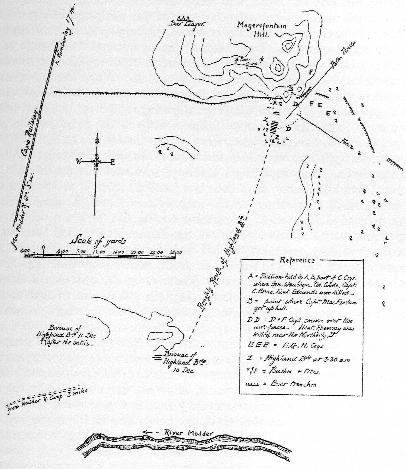 Boer Laager
Magersfontein
Hill.
Farm House
Cape Railway
to Kimberley 17 m.
from Modder R. Stn. 5 m.
D E E
A
B
D
W E
Fence
Scale of yards
Rough Route of Highland Bde
Bivouac of
Highland Bde 11 Dec.
(after the battle)
Bivouac of
Highland Bde
10 Dec
from Modder R. Camp 3 miles
River Modder
Reference
A = Position held by A, B, part of C Coys.
where Gen. Wauchope, Col. Coode, Capt.
and Lieut. Edmonds were killed.
B = point where Capt. MacFarlan
got up hill.
D D = D & F Coys
wire fence. Lieut.
killed near the Northerly D
E E E = H. G. H. Coys
= Highland Bde at 3.30 am
= Bushes & trees.
= Boer trenches